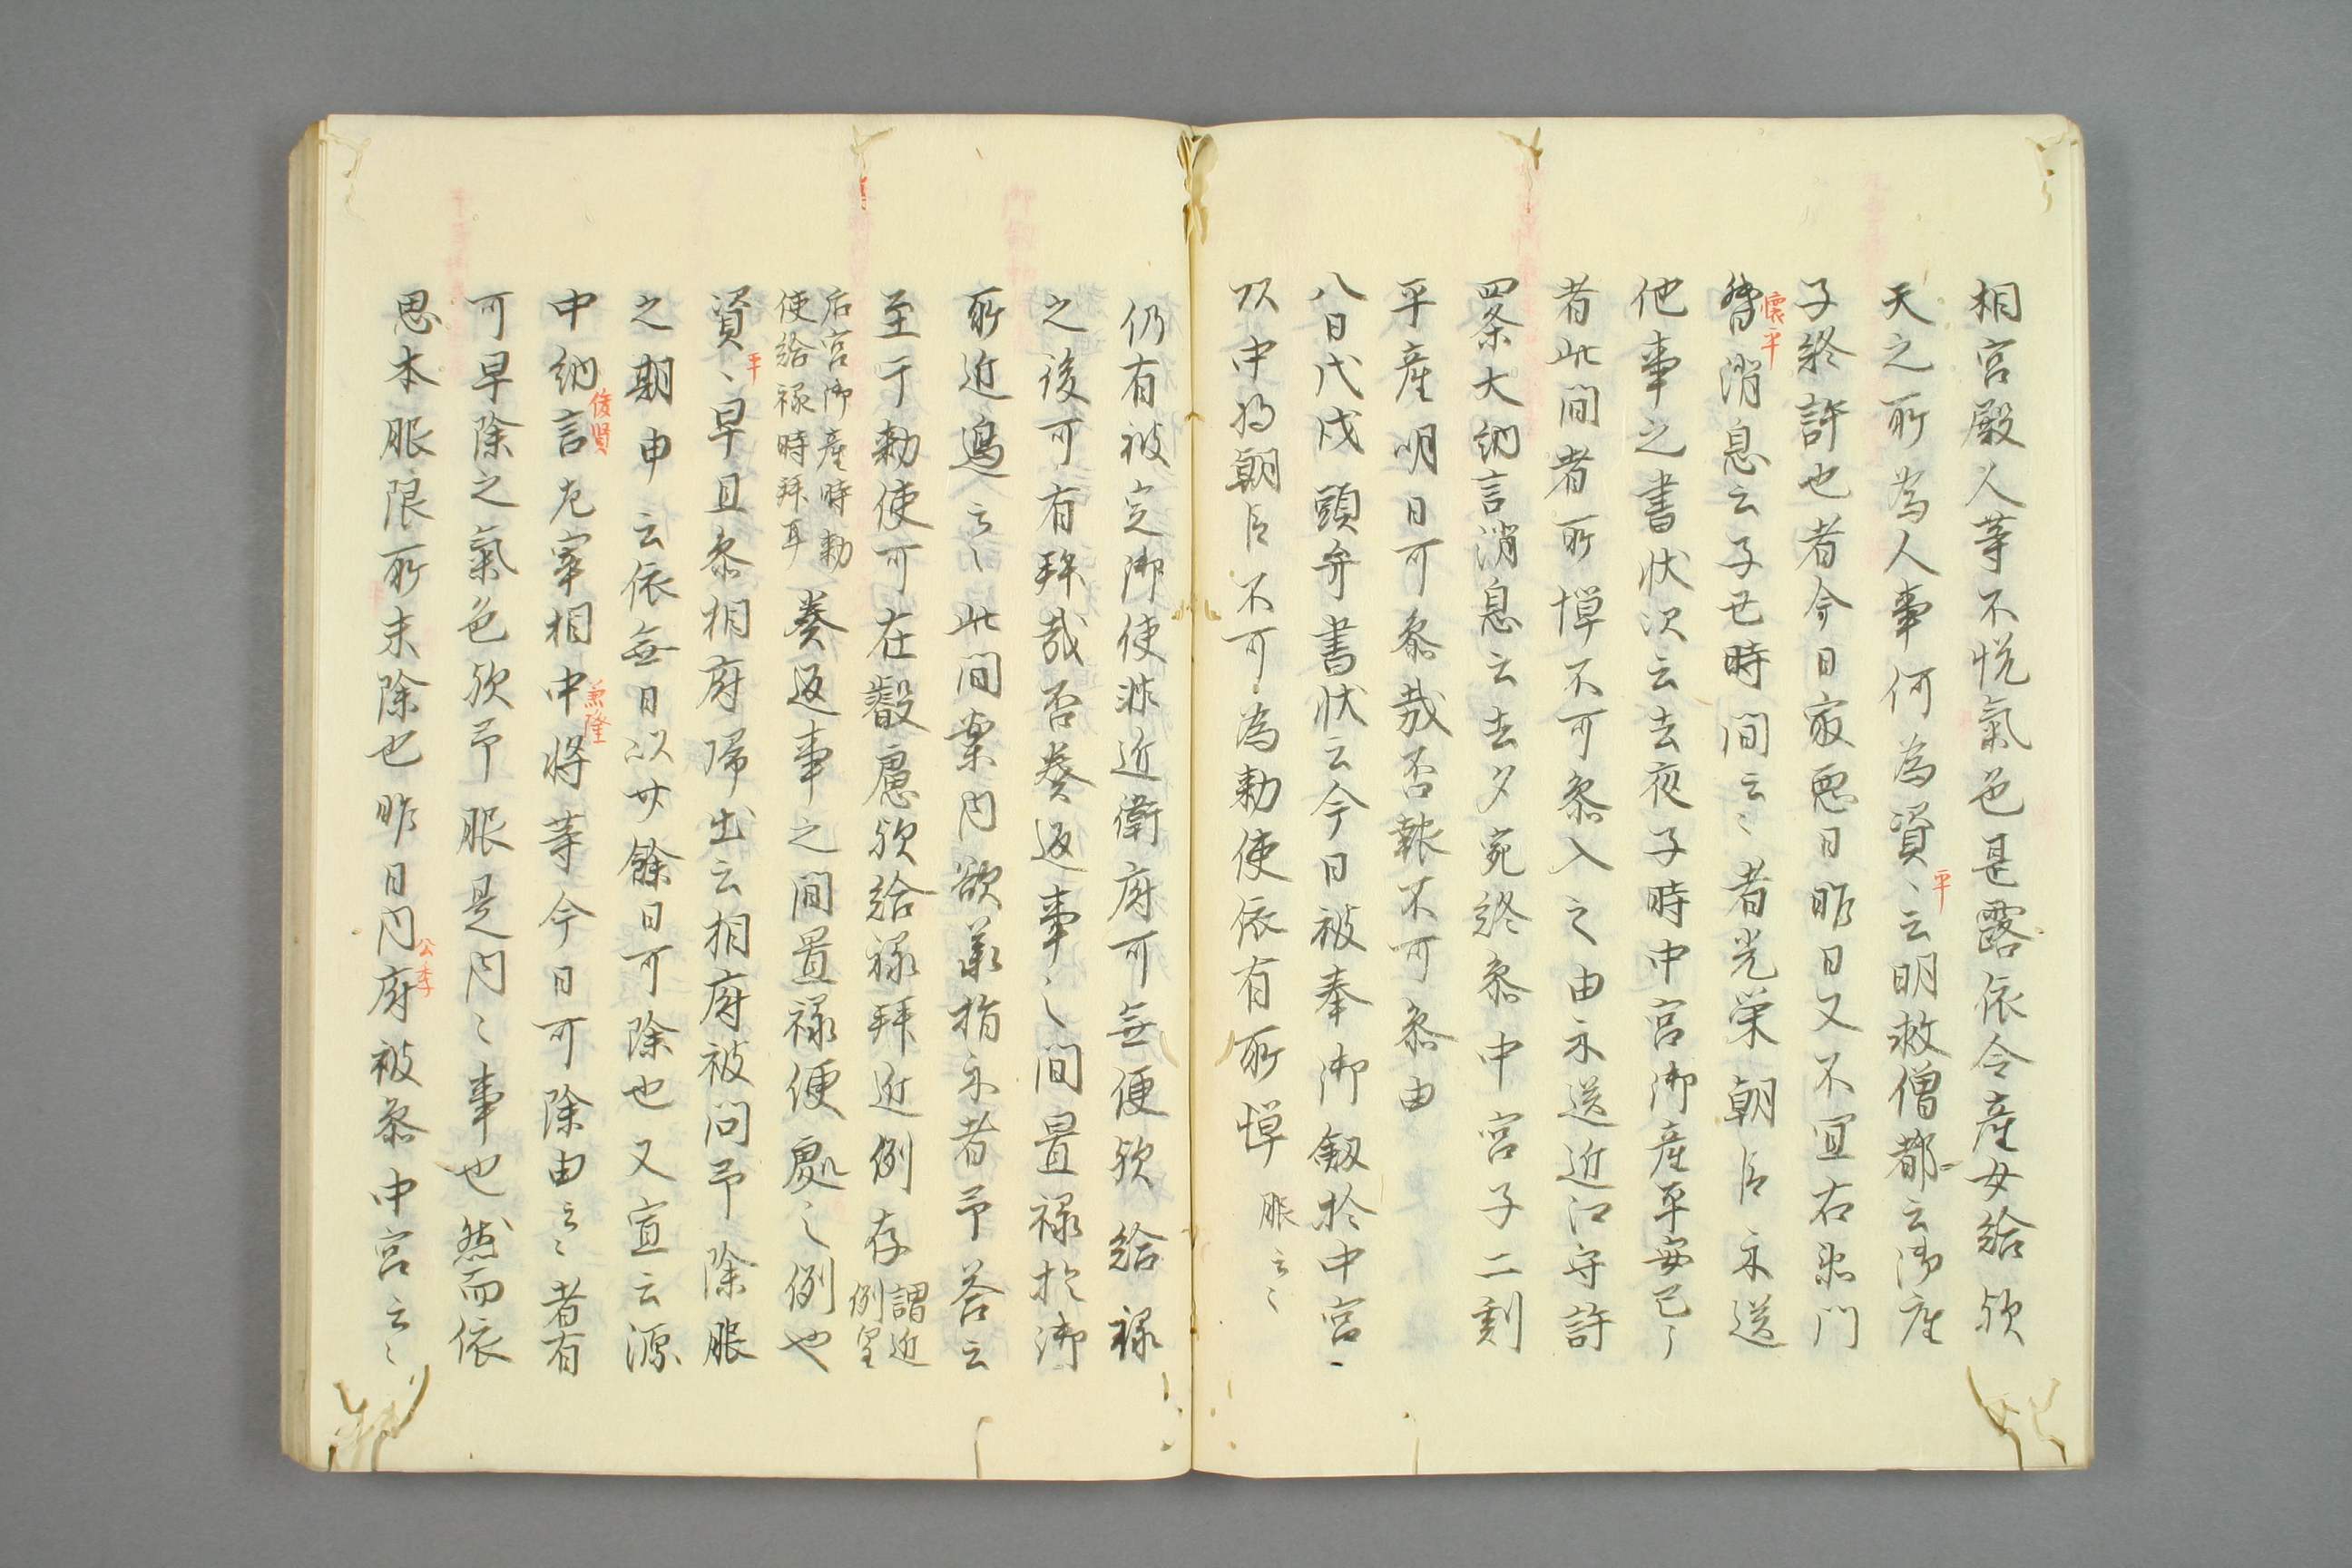 相宮殿人等不悦氣色是露依令産女給欤
天之所為人事何為資〻云明救僧都云御産
平
子終許也者今日衰惡日昨日又不宜右衛門
督消息云子丑時間云〻者光栄朝臣示送
懷平
他事之書状次云去夜子時中宮御産平安已了
者此間者所憚不可參入之由示送近江守許
四条大納言消息云去夕宛終參中宮子二剋
平産明日可參哉否報不可參由
八日戊戌頭弁書状云今日被奉御釼於中宮、
以中将朝臣不可為勅使依有所憚 服云〻
仍有被定御使非近衛府可無便欤給禄
之後可有拜哉否奏返事〻間置禄於御
所近邊云〻此間案内欲承指示者予答云
至于勅使可在叡慮欤給禄拜近例存 謂近例皇
后宮御産時勅使給禄時拜耳 奏返事之間置禄便處〻例也
資〻早旦參相府帰出云相府被問予除服
平
之期申云依無日以廿餘日可除也又宣云源
中納言左宰相中将等今日可除由云〻者有
俊賢
兼隆
可早除之氣色欤予服是内〻事也然而依
思本服限所未除也昨日内府被參中宮云〻
公季